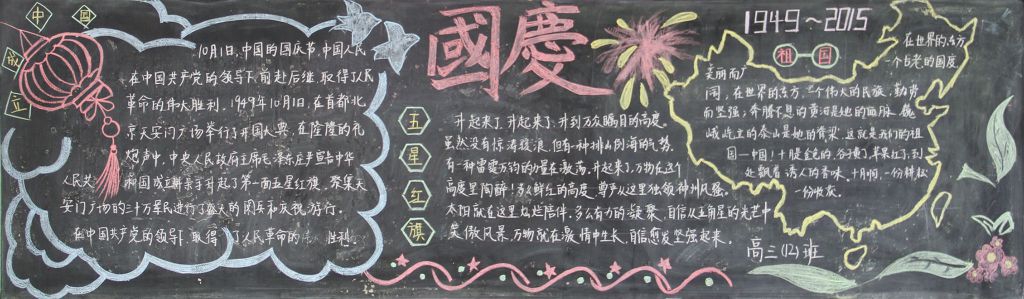 中国
成立
10月1日,中国的国庆节,中国人民
在中国共产党的领导下,前赴后继,取得了人民
革命的伟大胜利。1949年10月1日,在首都北
京天安门广场举行了开国大典,在隆隆的礼
炮声中,中央人民政府主席毛泽东庄严宣告中华
人民共和国成立并亲手升起了第一面五星红旗。聚集天
安门广场的三十万军民进行了盛大的阅兵和庆祝游行。
在中国共产党的领导下,取得了人民革命的 胜利
國慶
五星红旗
升起来了,升起来了,升到万众瞩目的高度
虽然没有惊涛骇浪,但有一种排山倒海的气势
有一种雷霆万钧的力量在激荡,升起来了,万物在这个
高度里陶醉!多么鲜红的高度,尊严从这里独领神州风骚。
太阳就在这里 陪伴。多么有力的凝聚,自信从五角星的光芒中
笑傲风景,万物就在激情中生长,自信愈发坚强起来。
1949~2015
祖国
在世界的东方
一个古老的国度
美丽而广
阔,在世界的东方,一个伟大的民族,勤劳
而坚强,奔腾不息的黄河是她的血脉,巍
峨屹立的泰山是她的脊梁,这就是我们的祖
国—中国!十月金色的,谷子黄了,苹果红了,到
处飘着诱人的香味,十月啊,一份耕耘
一份收获。
高三(12)班